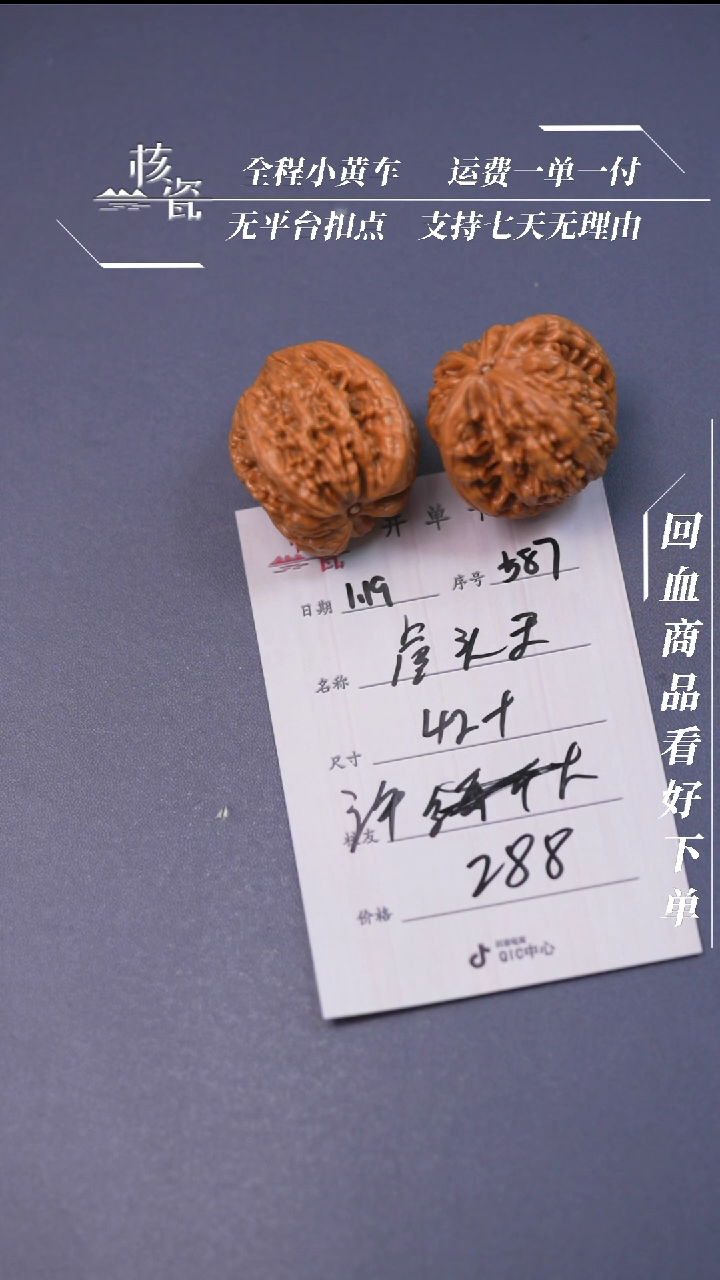 核瓷
全程小黄车 运费一单一付
无平台扣点 支持七天无理由
开单卡
日期 1.19 序号 587
名称
尺寸 42+
核友 许
价格 288
抖音电商
QIC中心
回血商品看好下单